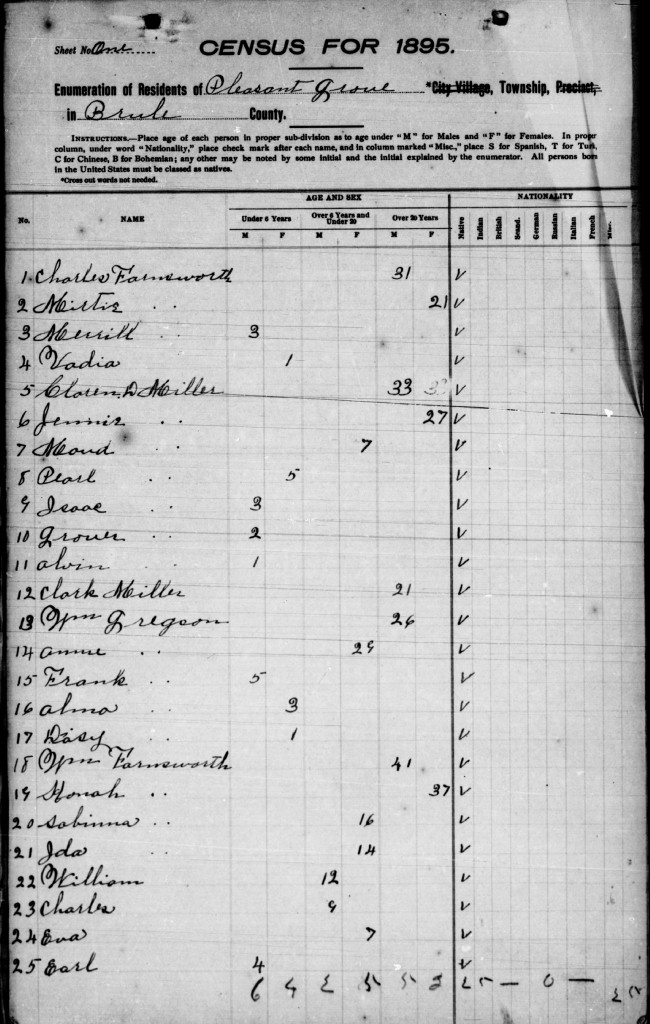 Sheet No. One
CENSUS FOR 1895.
Enumeration of Residents of Pleasant Grove *City Village, Township, Precinct,
in Brule County.
INSTRUCTIONS.—Place age of each person in proper sub-division as to age under "M" for Males and "F" for Females. In proper
column, under word "Nationality," place check mark after each name, and in column marked "Misc.," place S for Spanish, T for Turk,
C for Chinese, B for Bohemian; any other may be noted by some initial and the initial explained by the enumerator. All persons born
in the United States must be classed as natives.
*Cross out words not needed.
AGE AND SEX NATIONALITY
No. NAME Under 6 Years Over 6 Years and Under 20 Over 20 Years Native Indian British Scand. German Russian Italian French Misc.
M F M F M F
1 Charles Farnsworth 31 V
2 Mirtie . . 21 V
3 Merrill . . 3 V
4 Vadia 1 V
5 Claren D Miller 33 33 V
6 Jennie . . 27 V
7 Maud . . 7 V
8 Pearl . . 5 V
9 Isaac . . 3 V
10 Grover . . 2 V
11 Alvin . . 1 V
12 Clark Miller 21 V
13 Wm Gregson 26 V
14 Annie . . 29 V
15 Frank . . 5 V
16 Alma . . 3 V
17 Dasy . . 1 V
18 Wm Farnsworth 41 V
19 Honah . . 37 V
20 Sabinna . . 16 V
21 Ida . . 14 V
22 William 12 V
23 Charles 9 V
24 Eva 7 V
25 Earl 4 V
6 5 5 — 0 —